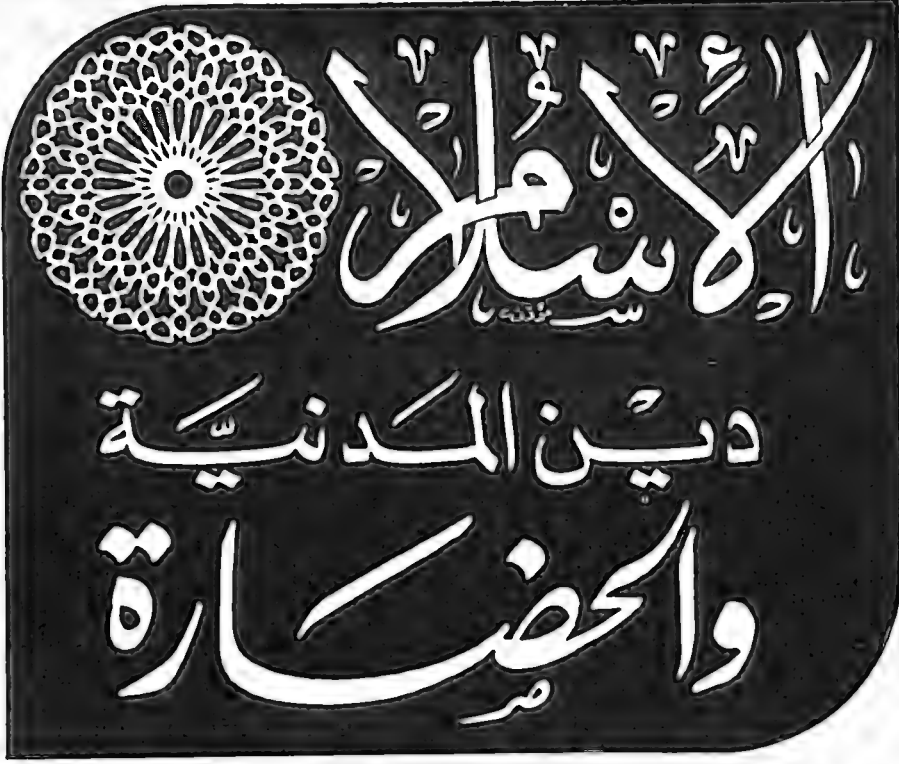 الإسلام
دين المدنيَّة
والحضارة